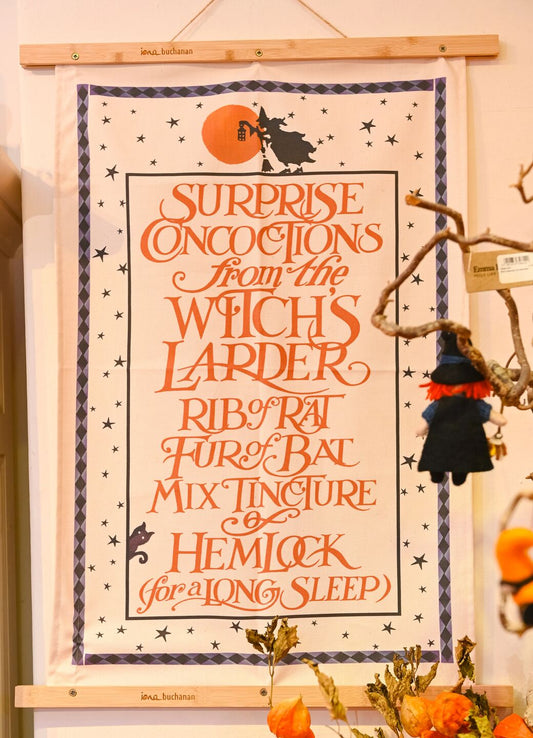 iona buchanan
SURPRISE
CONCOCTIONS
from the
WITCH'S
LARDER
RIB of RAT
FUR of BAT
MIX TINCTURE
of
HEMLOCK
(for a LONG SLEEP)
iona buchanan
Emma